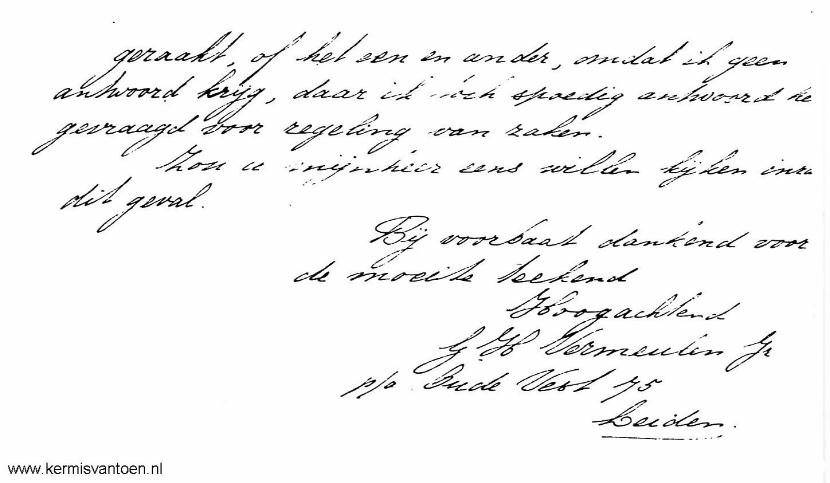 geraakt, of het een en ander, omdat ik geen
antwoord krijg, daar ik toch spoedig antwoord he
gevraagd voor regeling van zaken.
Zou u mijnheer eens willen kijken inza
dit geval.
Bij voorbaat dankend voor
de moeite teekend
Hoogachtend
G. H. Vermeulen Jr
p/a Oude Vest 75
Leiden.
www.kermisvantoen.nl